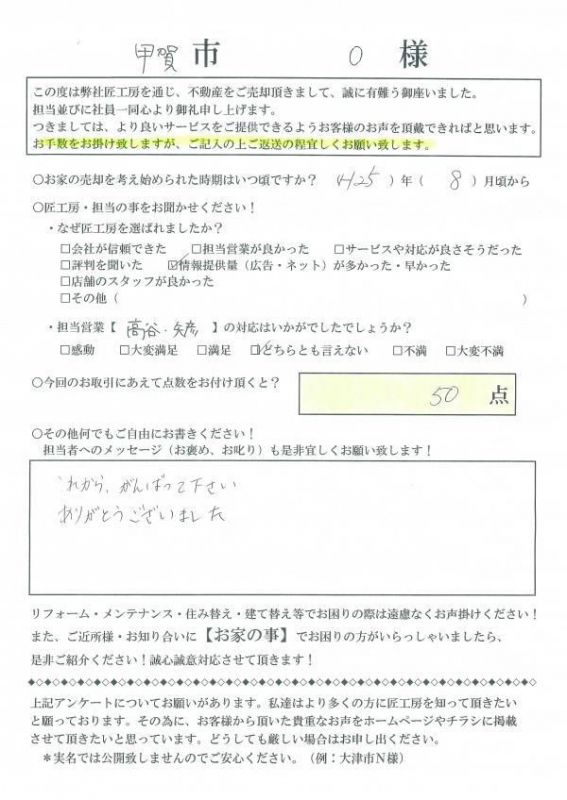 甲賀 市 O 様
この度は弊社匠工房を通じ、不動産をご売却頂きまして、誠に有難う御座いました。
担当並びに社員一同心より御礼申し上げます。
つきましては、より良いサービスをご提供できるようお客様のお声を頂戴できればと思います。
お手数をお掛け致しますが、ご記入の上ご返送の程宜しくお願い致します。
○お家の売却を考え始められた時期はいつ頃ですか？（H25）年（8）月頃から
○匠工房・担当の事をお聞かせください！
・なぜ匠工房を選ばれましたか？
□会社が信頼できた □担当営業が良かった □サービスや対応が良さそうだった
□評判を聞いた ☑情報提供量（広告・ネット）が多かった・早かった
□店舗のスタッフが良かった
□その他（ ）
・担当営業【 高谷・矢彦 】の対応はいかがでしたでしょうか？
□感動 □大変満足 □満足 ☑どちらとも言えない □不満 □大変不満
○今回のお取引にあえて点数をお付け頂くと？ 50 点
○その他何でもご自由にお書きください！
担当者へのメッセージ（お褒め、お叱り）も是非宜しくお願い致します！
これから、がんばって下さい
ありがとうございました
リフォーム・メンテナンス・住み替え・建て替え等でお困りの際は遠慮なくお声掛けください！
また、ご近所様・お知り合いに【お家の事】でお困りの方がいらっしゃいましたら、
是非ご紹介ください！誠心誠意対応させて頂きます！
上記アンケートについてお願いがあります。私達はより多くの方に匠工房を知って頂きたい
と願っております。その為に、お客様から頂いた貴重なお声をホームページやチラシに掲載
させて頂きたいと思っています。どうしても厳しい場合はお申し出ください。
＊実名では公開致しませんのでご安心ください。（例：大津市N様）